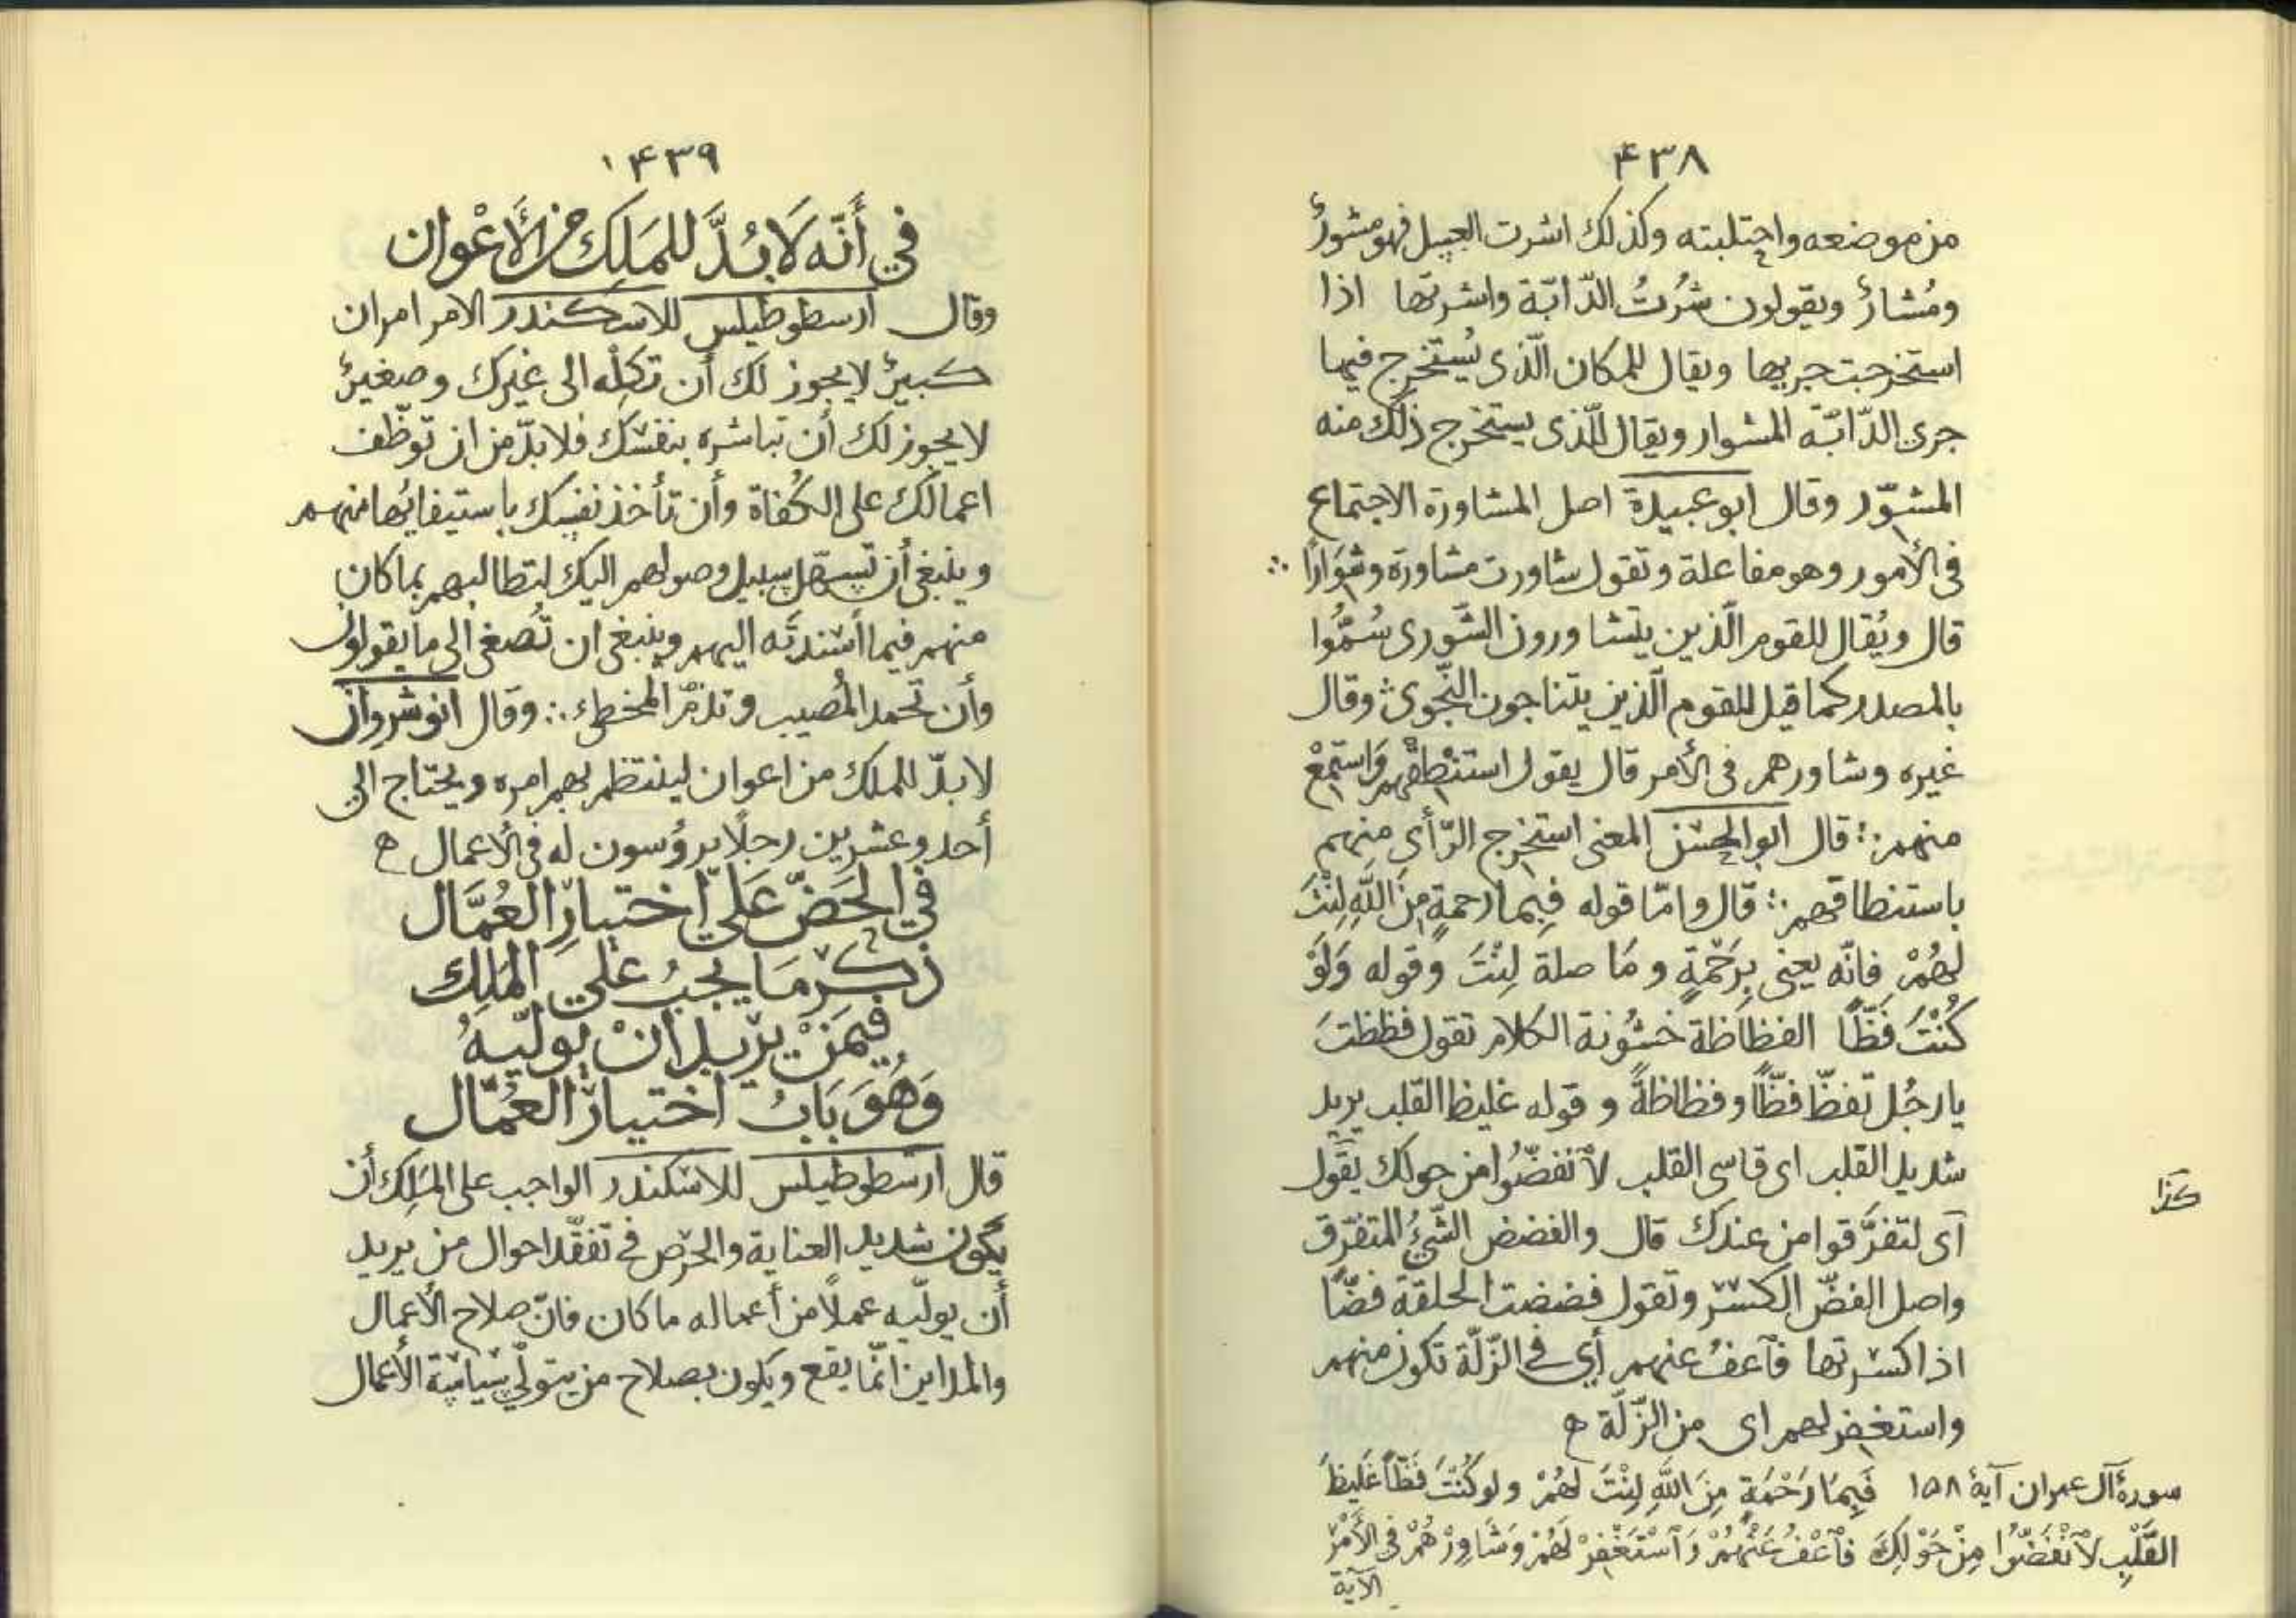 ۴۳۸
من موضعه واجتلبته وكذلك اشرت العسل فهو مشورٌ
ومُشارٌ ويقولون شُرْتُ الدّابّة واشرتها اذا
استخرجت جريها ويقال للمكان الّذى يُستخرج فيها
جرى الدّابّة المشوار ويقال للّذى يستخرج ذلك منه
المشوّر وقال ابو عبيدة اصل المشاورة الاجتماع
فى الأمور وهو مفاعلة وتقول شاورت مشاورة وشوارًا ∴
قال ويُقال للقوم الّذين يتشاورون الشّورى سُمُّوا
بالمصدر كما قيل للقوم الّذين يتناجون النّجوى ∴ وقال
غيره وشاورهم فى الأمر قال يقول استنْطِقْهم وَاستَمِعْ
منهم ∴ قال ابو الحسن المعنى استخرج الرّأى منهم
باستنطاقهم ∴ قال وامّا قوله فَبِما رحمةٍ مِنَ اللهِ لِنْتَ
لهُمْ فانّه يعنى بِرَحْمَةٍ و مَا صلة لِنْتَ وقوله وَلَوْ
كُنْتَ فَظًّا الفظاظة خشُونة الكلام تقول فظظتَ
يا رجُل تفظّ فظًّا وفظاظةً و قوله غليظ القلب يريد
شديد القلب اى قاسى القلب لاَنفضّوُا من حولك يَقُول
كذا
اَى لتفرَّقوا من عندك قال والفضض الشّئُ المتفرّق
واصل الفضّ الكسر وتقول فضضت الحلقة فضًّا
اذا كسرتها فاَعفُ عنهم أي فى الزّلّة تكون منهم
واستغفر لهم اى من الزّلّة ه
سورهٔ آل عمران آیهٔ ۱۵۸ فَبِمَا رَحْمَةٍ مِنَ اللهِ لِنْتَ لَهُمْ ولو كُنْتَ فَظًّا غَلِيظَ
القَلْبِ لاَنْفَضُّوا مِنْ حَوْلِكَ فَاَعْفُ عَنْهُمْ وَاَسْتَغْفِرْ لَهُمْ وَشَاوِرْهُمْ فى الأَمْرِ
الآية
۴۳۹
في أَنَّه لَا بُدَّ للمَلِكِ من الأَعْوان
وقال ارسطوطيلس للاسكندر الامر امران
كبيرٌ لا يجوز لك أن تكِلْه الى غيرك وصغيرٌ
لا يجوز لك أن تباشره بنفسك فلا بدّ من ان توظّف
اعمالك على الكُفاة وأن تأخذ نفسك باستيفائها منهم
وينبغى أن تسهّل سبيل وصولهم اليك لتطالبهم بما كان
منهم فيما أسندتَه اليهم وينبغى ان تُصغى الى ما يقولون
وأن تحمد المُصيب وتذمّ المخطئ ∴ وقال انوشروان
لا بدّ للملك من اعوان لينتظم بهم امره ويحتاج الى
أحد وعشرين رجلًا يرؤسون له فى الأعمال ه
في الحَضّ عَلى اختيارِ العُمَّال
ذكر مَا يجبُ على المَلِك
فيمَنْ يُريد أنْ يوليّهُ
وَهُوَ بَابُ اختيار العُمّال
قال ارسطوطيلس للاسكندر الواجب على المَلِك أن
يكون شديد العناية والحرص فى تفقّد احوال من يريد
أن يوليّه عملًا من أعماله ما كان فانّ صلاح الأعمال
والمداين انّما يقع ويكون بصلاح من يتولّى سياسة الأعمال